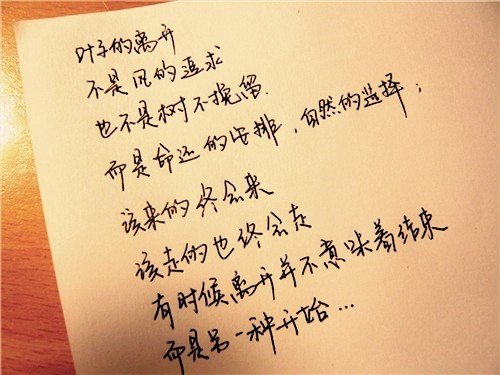 叶子的离开
不是风的追求
也不是树不挽留
而是命运的安排，自然的选择；
该来的终会来
该走的也终会走
有时候离开并不意味着结束
而是另一种开始…